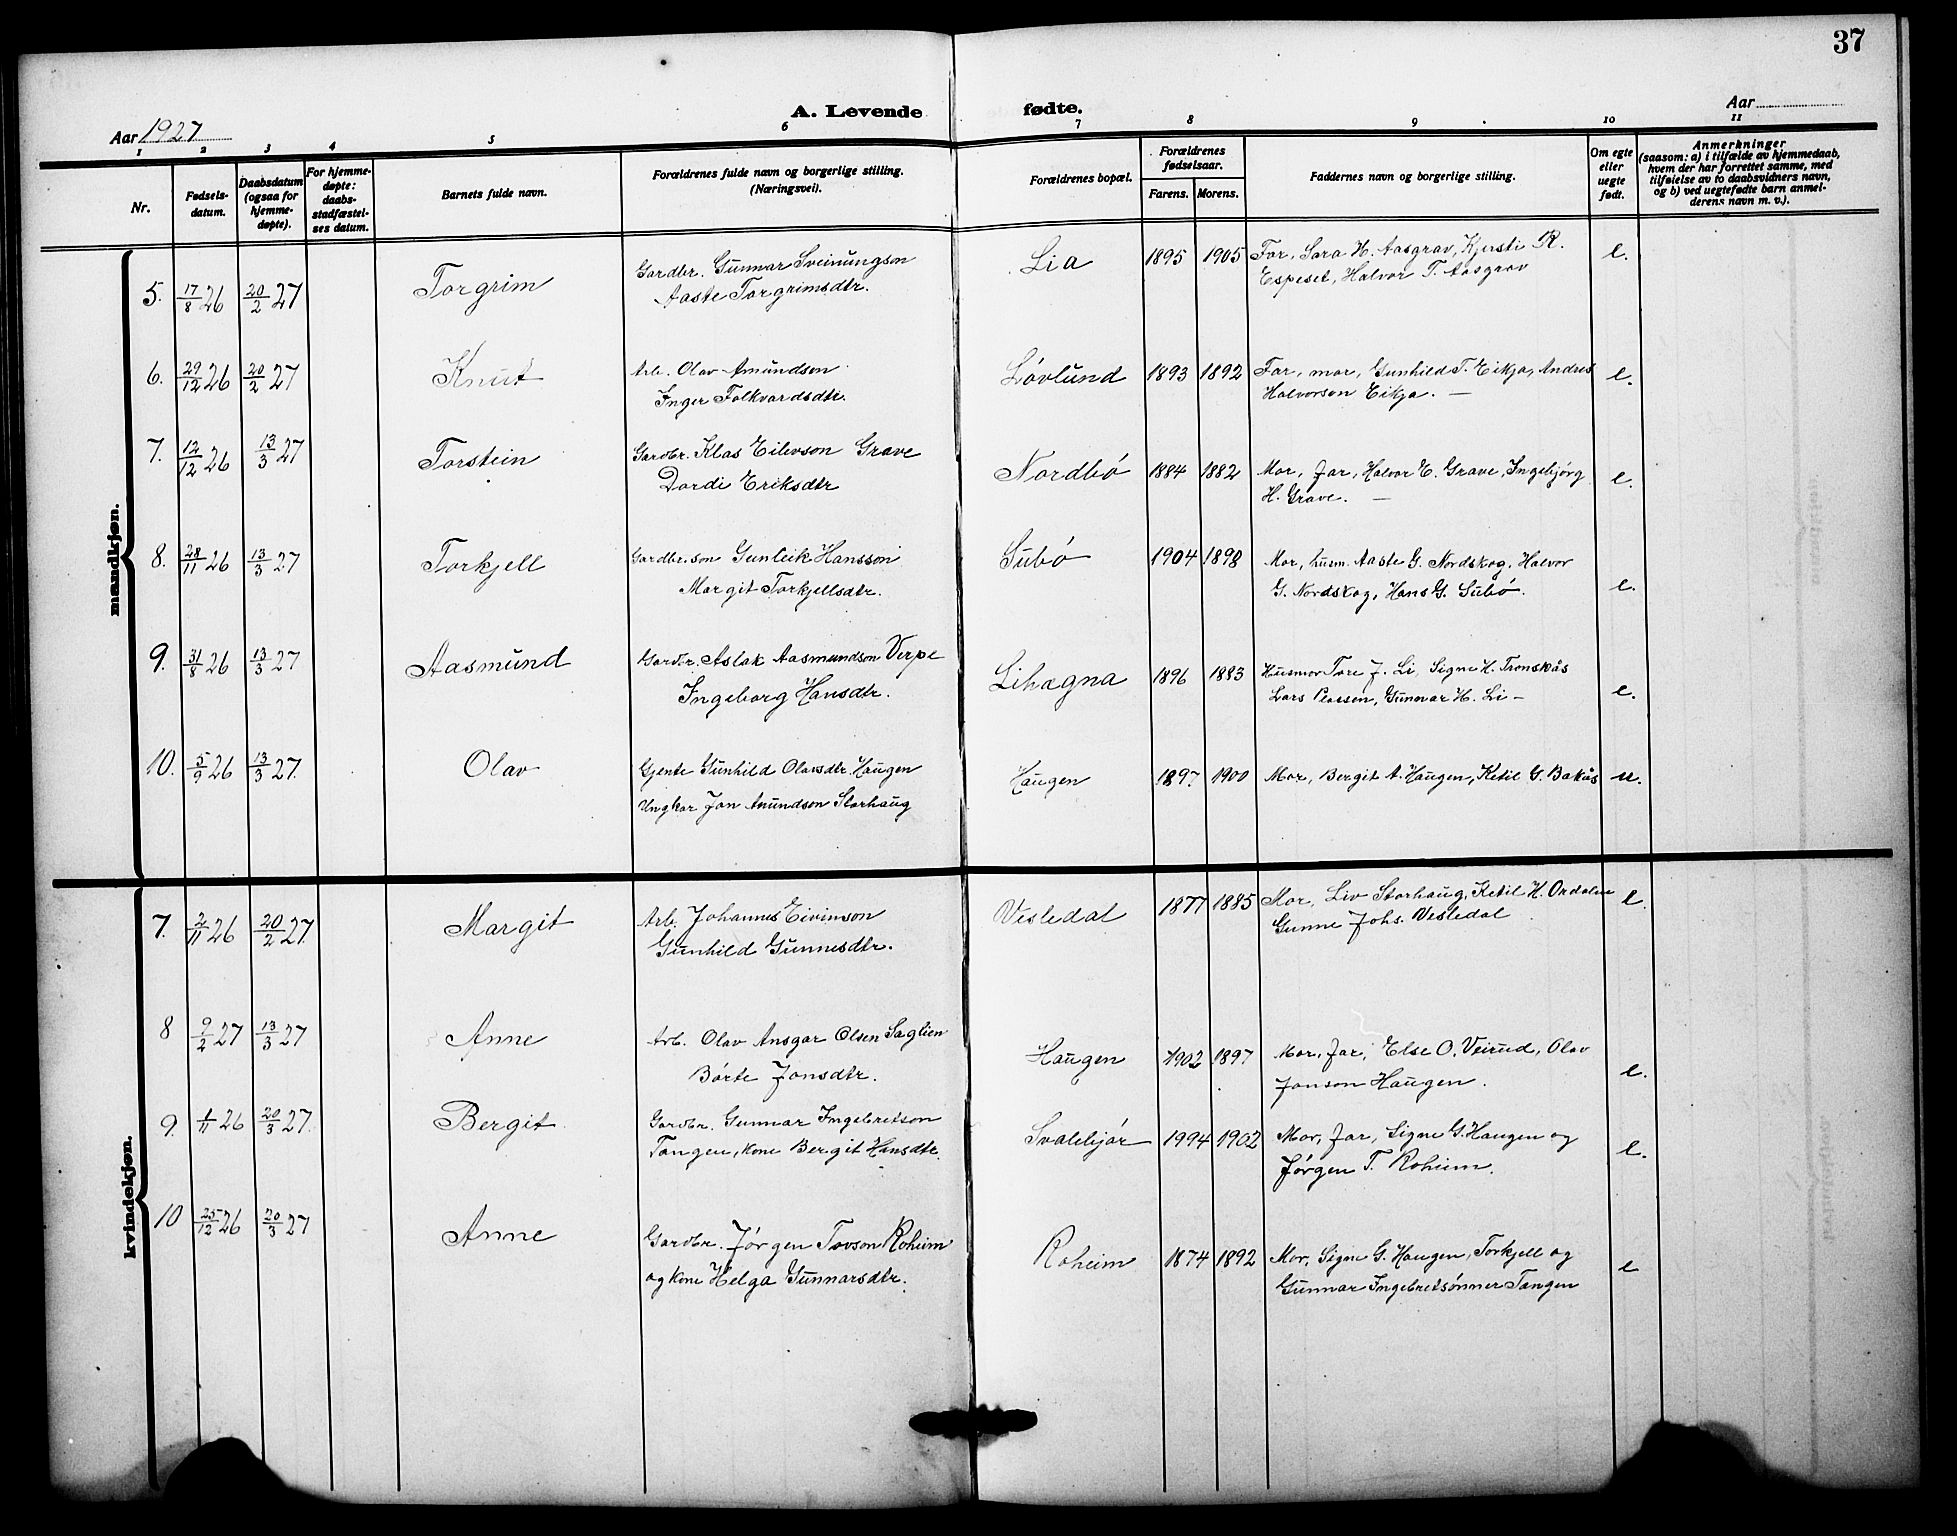 37
A. Levende fødte.
Aar 1927
Aar
1 2 3 4 5 6 7 8 9 10 11
Nr.
Fødsels-
datum.
Daabsdatum
(ogsaa for
hjemme-
døpte).
For hjemme-
døpte:
daabs-
stadfæstel-
ses datum.
Barnets fulde navn.
Forældrenes fulde navn og borgerlige stilling.
(Næringsvei).
Forældrenes bopæl.
Forældrenes
fødselsaar.
Farens. Morens.
Faddernes navn og borgerlige stilling.
Om egte
eller
uegte
født.
Anmerkninger
(saasom: a) i tilfælde av hjemmedaab,
hvem der har forrettet samme, med
tilføielse av to daabsvidners navn,
og b) ved uegtefødte barn anmel-
derens navn m. v.).
mandkjøn.
5. 17/8 26 20/2 27 Torgrim Gardbr. Gunnar Sveinungson Lia 1895 1905 Far, Sara H. Aasgrav, Kjersti R. e.
Aaste Torgrimsdtr. Espeset, Halvor T. Aasgrav
6. 29/12 26 20/2 27 Knut Arb. Olav Amundson Lóvlund 1893 1892 Far, mor, Gunhild T. Eikja, Andres e.
Inger Folkvardsdtr. Halvorson Eikja. —
7. 12/12 26 13/3 27 Torstein Gardbr. Klas Eilevson Grave Nordbó 1884 1882 Mor, far, Halvor E. Grave, Ingebjórg e.
Dordi Eriksdtr H. Grave. —
8. 28/11 26 13/3 27 Torkjell Gardbr. son Gunleik Hansson Subó 1904 1898 Mor, husm. Aaste G. Nordskog, Halvor e.
Margit Torkjellsdtr. G. Nordskog, Hans G. Subó.
9. 31/8 26 13/3 27 Aasmund Gardbr. Aslak Aasmundson Verpe Lihagna 1896 1883 Husmor Tore J. Li, Signe H. Tronskås e.
Ingeborg Hansdtr. Lars Classen, Gunnar H. Li –
10. 5/9 26 13/3 27. Olav Gjente Gunhild Olavsdtr. Haugen Haugen 1897 1900 Mor, Bergit A. Haugen, Ketil G. Bakås u.
Ungkar Jon Amundson Storhaug
kvindekjøn.
7. 2/11 26 20/2 27. Margit Arb. Johannes Eivinson Vesledal 1877 1885 Mor, Liv Storhaug, Ketil H. Ordalen e.
Gunhild Gunnesdtr. Gunne Johs. Vesledal
8 9/2 27 13/3 27 Anne Arb. Olav Ansgar Olsen Saglien Haugen 1902 1897 Mor, far, Else O. Veirud, Olav e.
Bórte Jonsdtr. Jonson Haugen.
9. 1/11 26 20/3 27. Bergit Gardbr. Gunnar Ingebretson Svalebjór 1994 1902 Mor, far, Signe G. Haugen og e.
Tangen, kone Bergit Hansdtr. Jórgen T. Roheim.
10 25/12 26 20/3 27 Anne Gardbr. Jórgen Tovson Roheim Roheim 1874 1892 Mor, Signe G. Haugen, Torkjell og e
og kone Helga Gunnarsdtr. Gunnar Ingebretsónner Tangen